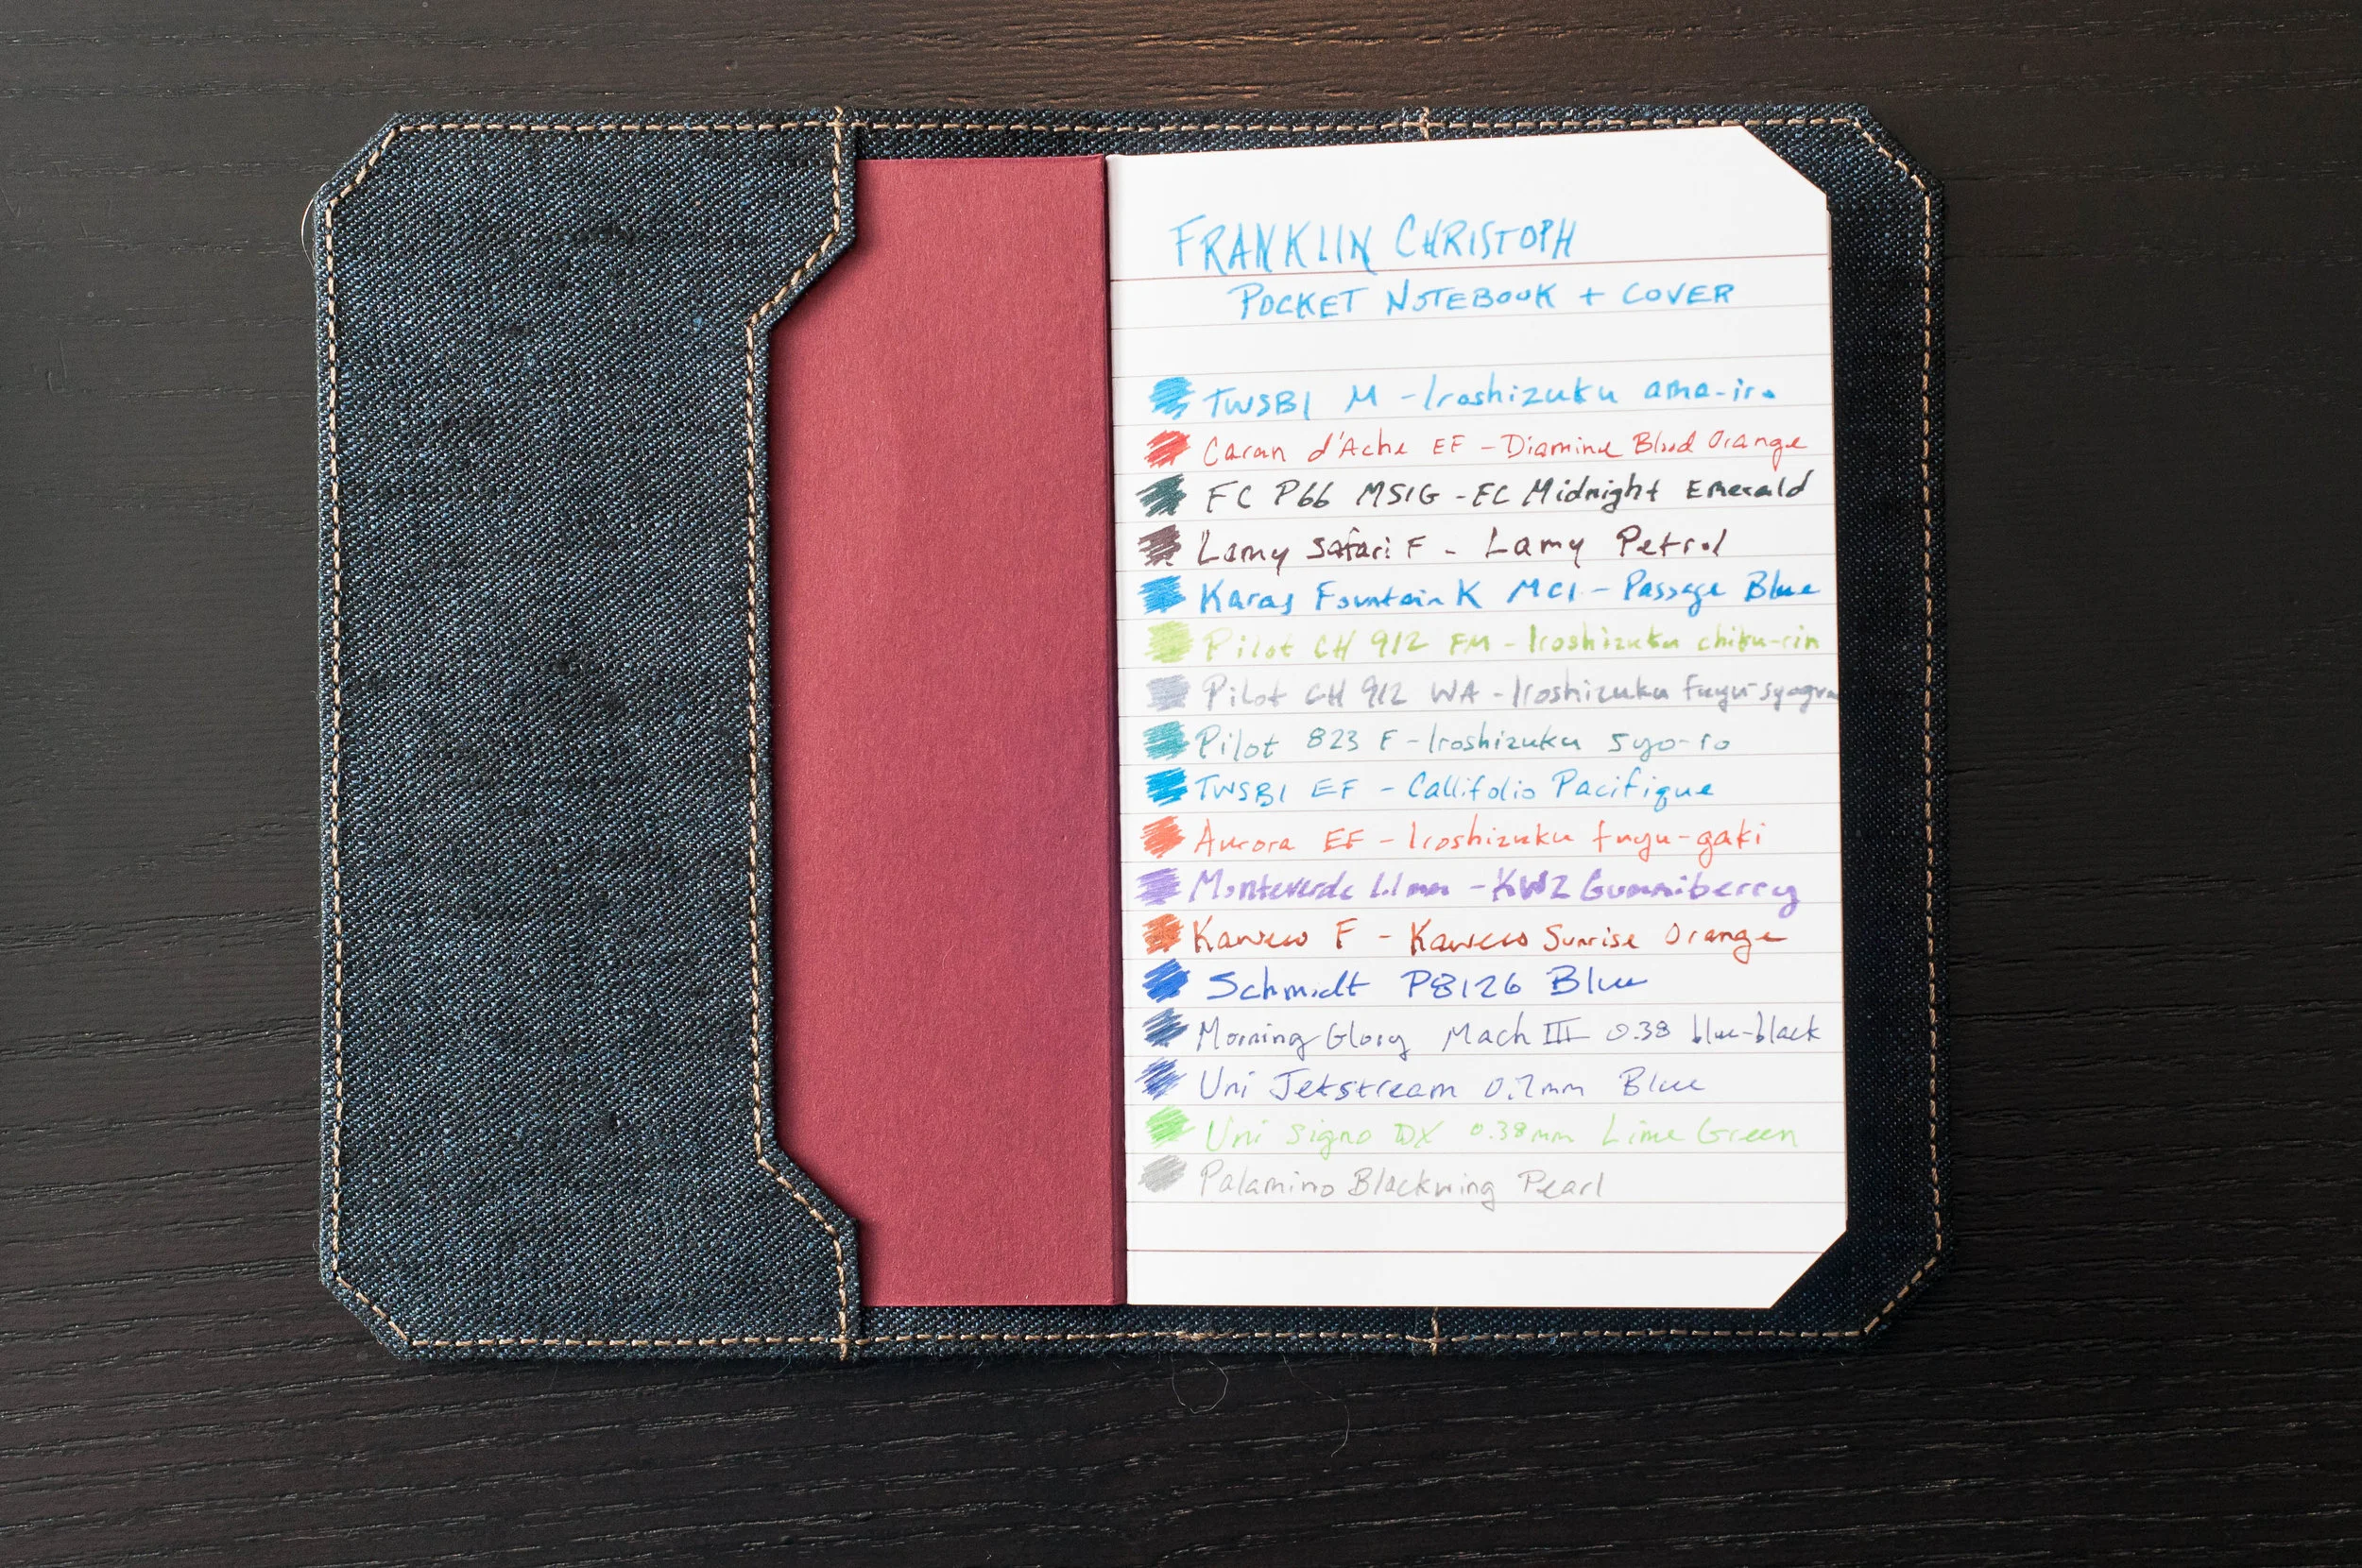 FRANKLIN CHRISTOPH
POCKET NOTEBOOK + COVER
TWSBI M - Iroshizuku ama-iro
Caran d'Ache EF - Diamine Blood Orange
FC P66 MSIG - FC Midnight Emerald
Lamy Safari F - Lamy Petrol
Karas Fountain K MCI - Passage Blue
Pilot CH 912 FM - Iroshizuku chiku-rin
Pilot CH 912 WA - Iroshizuku fuyu-syogun
Pilot 823 F - Iroshizuku syo-ro
TWSBI EF - Callifolio Pacifique
Aurora EF - Iroshizuku fuyu-gaki
Monteverde 1.1mm - KWZ Gummiberry
Kaweco F - Kaweco Sunrise Orange
Schmidt P8126 Blue
Morning Glory Mach III 0.38 blue-black
Uni Jetstream 0.7mm Blue
Uni Signo DX 0.38mm Lime Green
Palamino Blackwing Pearl